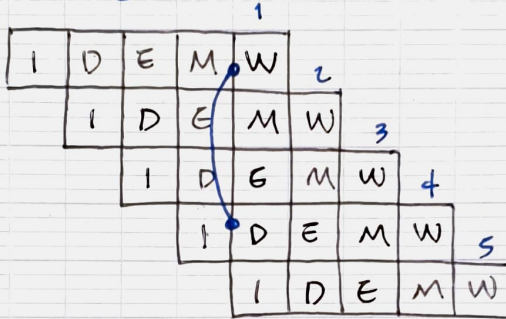 1
I D E M W 2
I D E M W 3
I D E M W 4
I D E M W 5
I D E M W